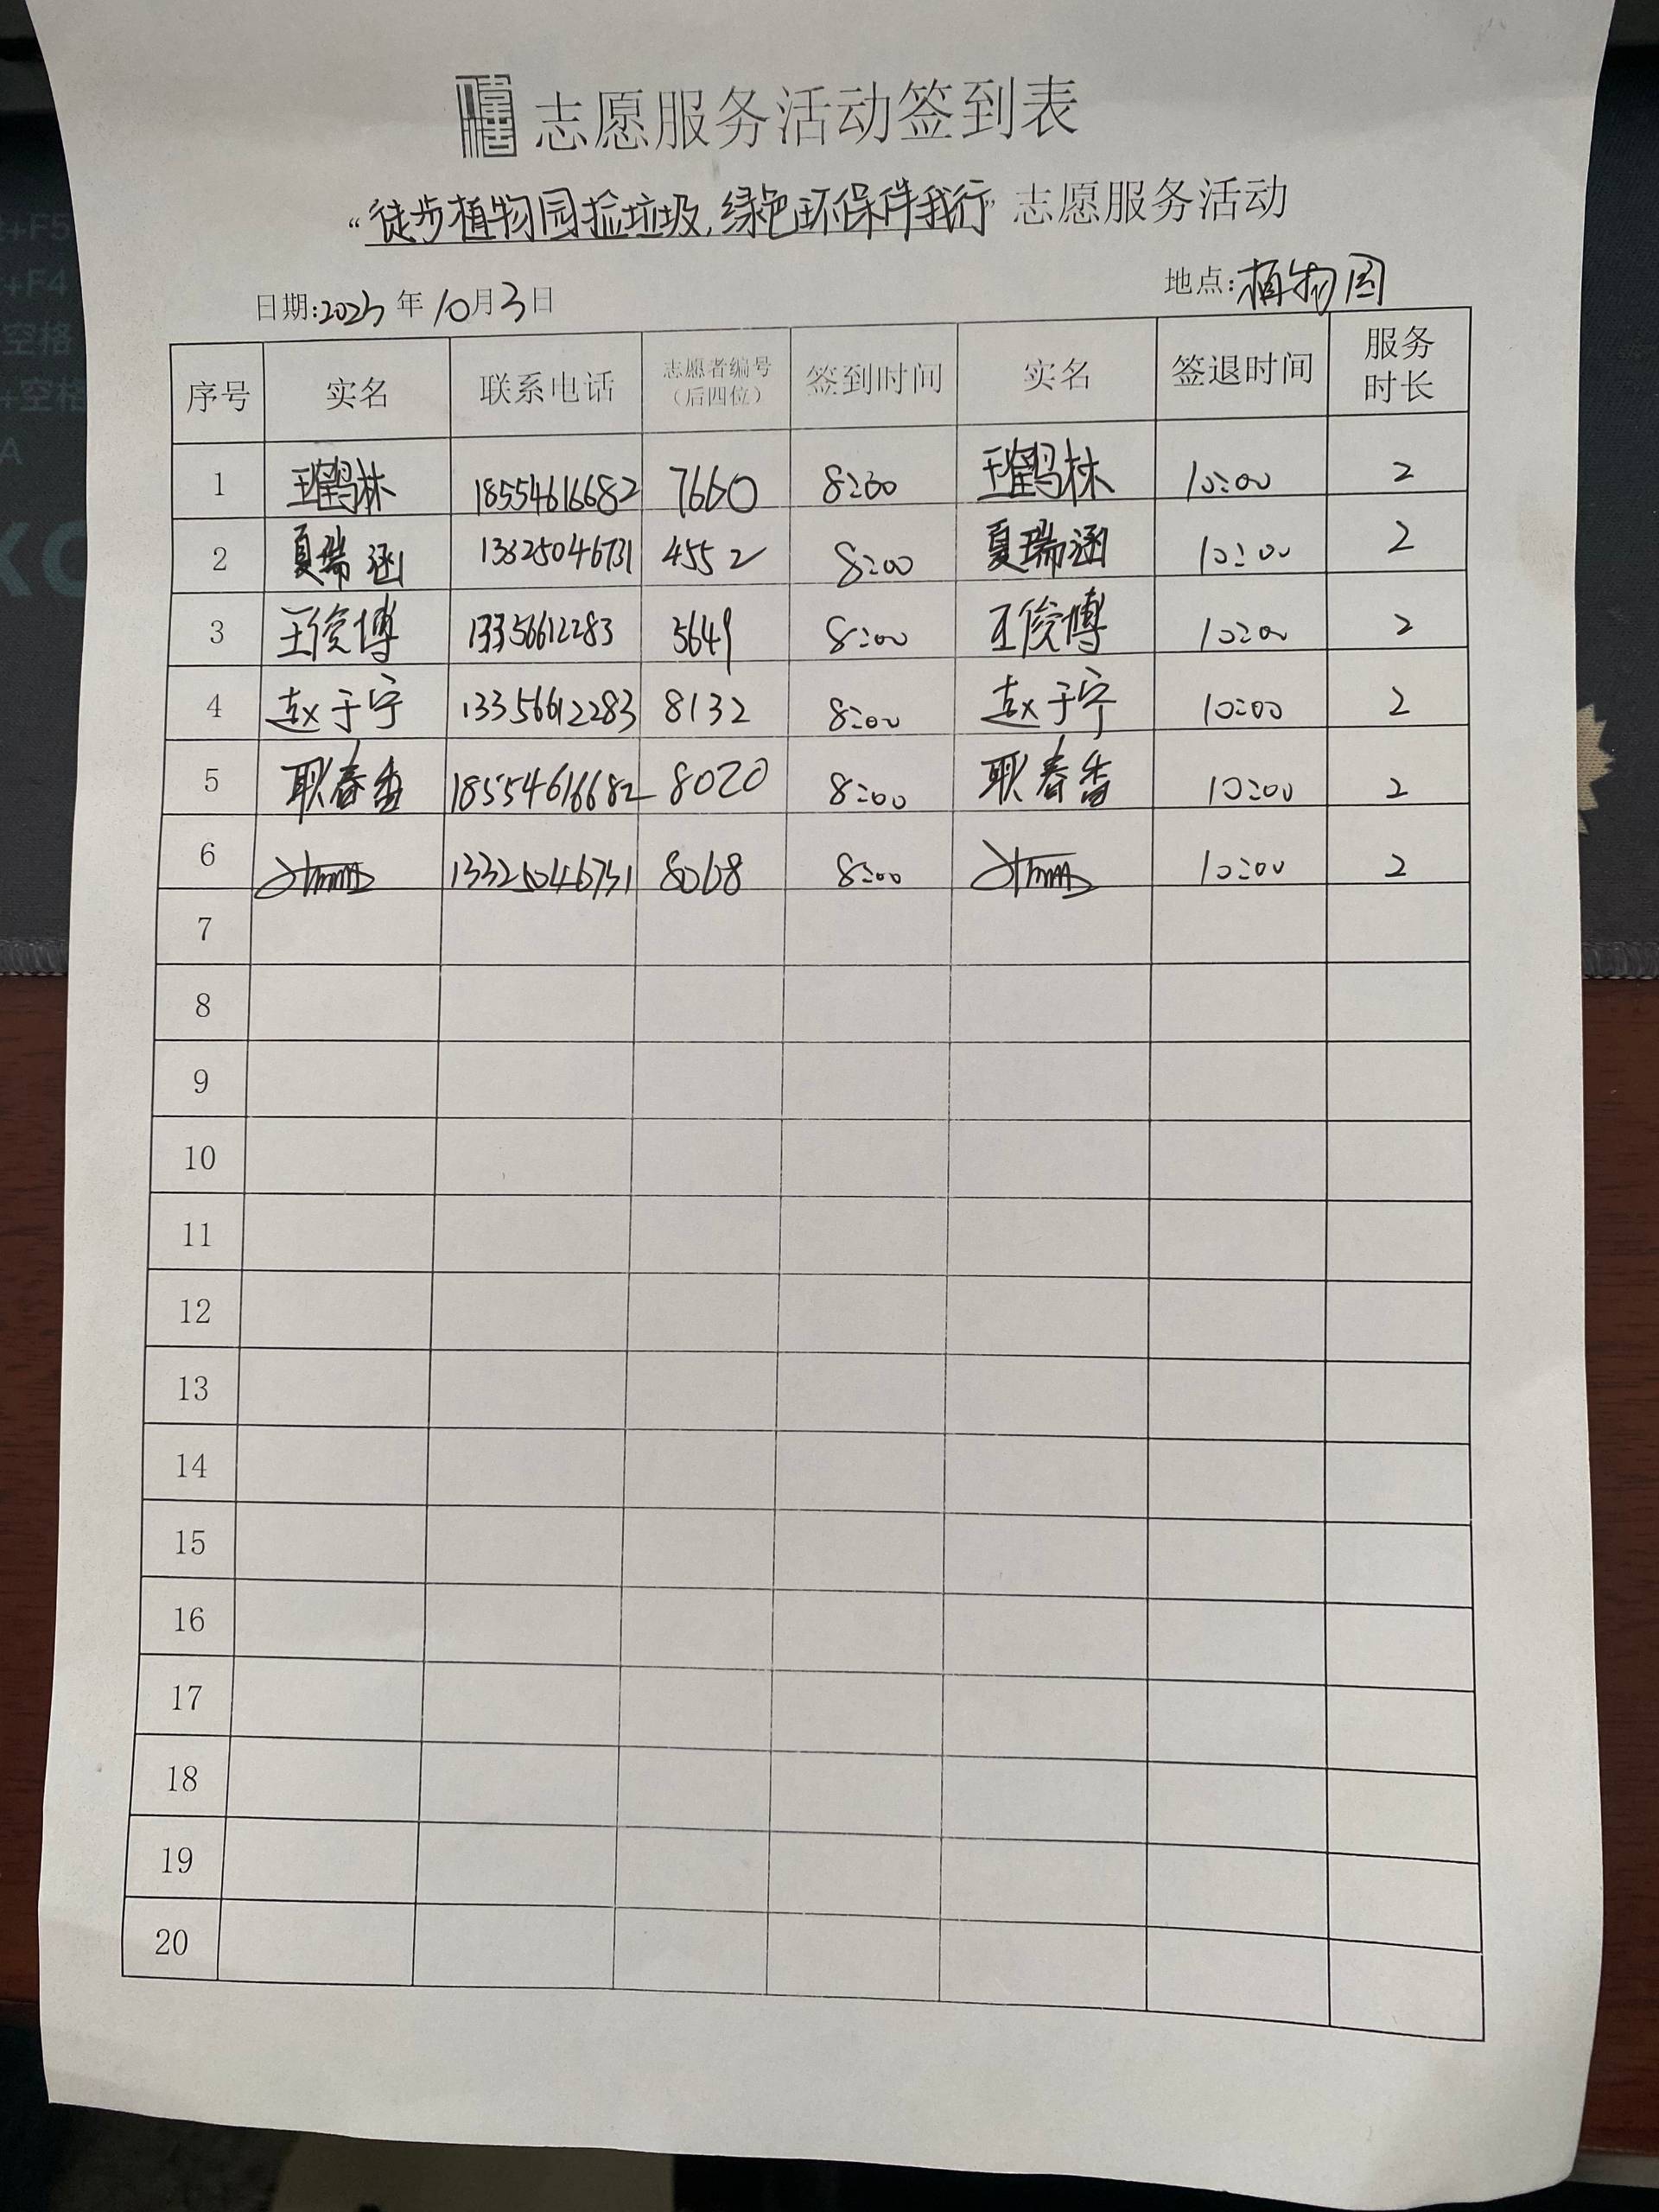 志愿服务活动签到表
“徒步植物园捡垃圾,绿色环保伴我行”志愿服务活动
日期:2023年10月3日 地点:植物园
序号 实名 联系电话 志愿者编号(后四位) 签到时间 实名 签退时间 服务时长
1 王鹤林 18554616682 7660 8:00 王鹤林 10:00 2
2 夏瑞涵 13325046731 4552 8:00 夏瑞涵 10:00 2
3 王俊博 13356612283 5649 8:00 王俊博 10:00 2
4 赵于宁 13356612283 8132 8:00 赵于宁 10:00 2
5 耿春香 18554616682 8020 8:00 耿春香 10:00 2
6 13325046731 8068 8:00 10:00 2
7
8
9
10
11
12
13
14
15
16
17
18
19
20
+F5
+F4
空格
+空格
A